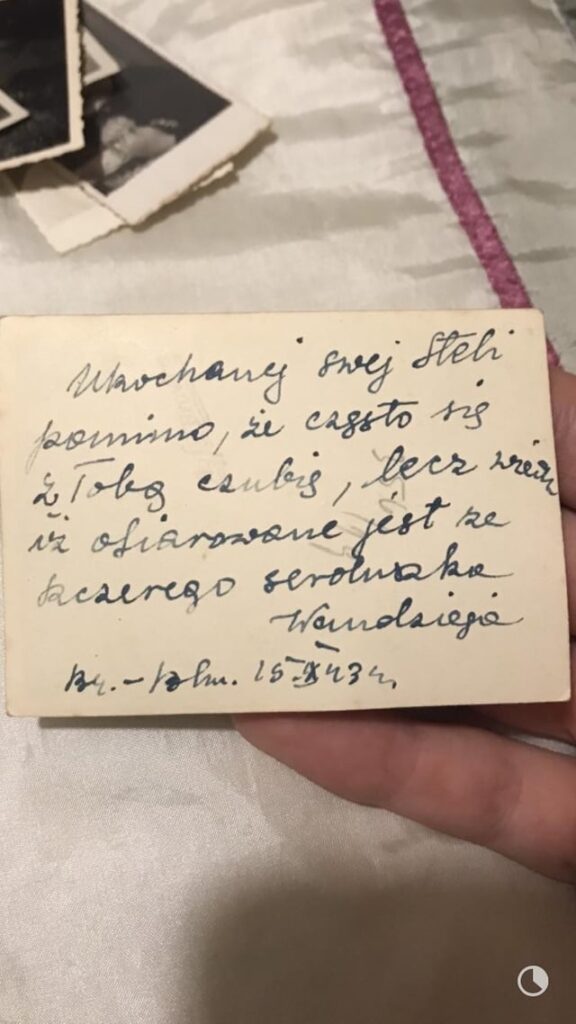 Ukochanej swej Steli
pomimo, że często się
z Tobą czubię, lecz wiedz
iż ofiarowane jest ze
szczerego serduszka
Wandzia
15.X.43 r.